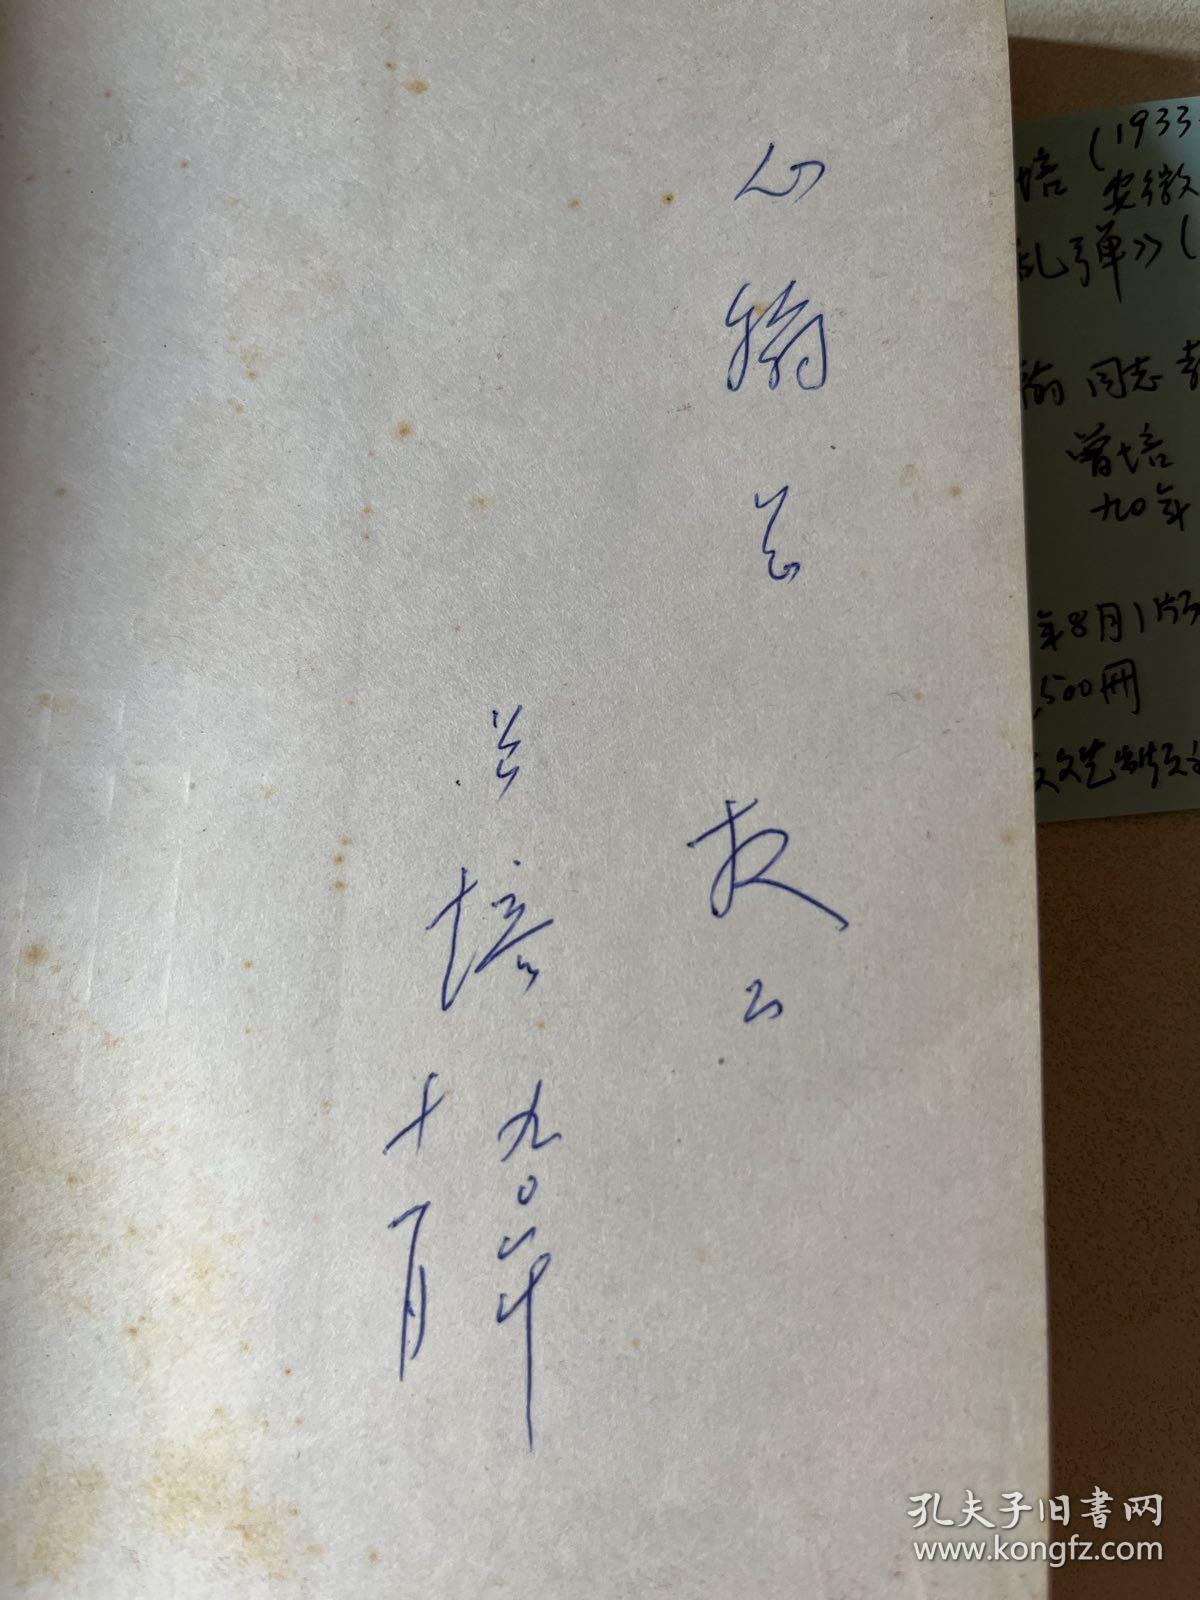 心翰兄
教正
曾培
九〇年
十月
培（1933
安徽
乱弹》（
同志教
曾培
九〇年
年8月1版
500册
文艺出版社
孔夫子旧书网
www.kongfz.com